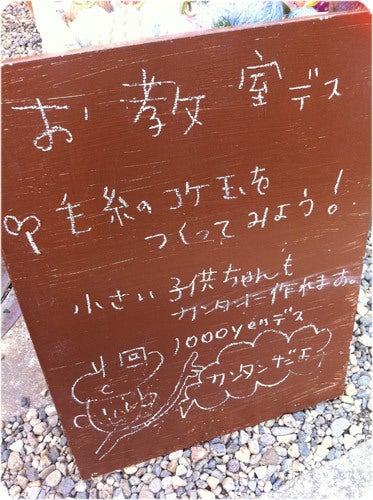 お教室デス
毛糸のコケ玉を
つくってみよう!
小さい子供ちゃんも
カンタンに作れます。
1回
1000yenデス
カンタンだよ